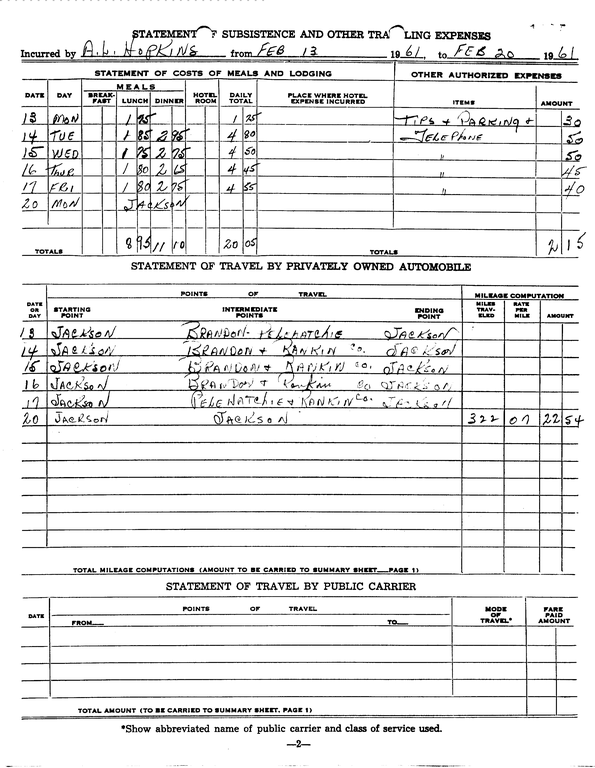 STATEMENT F SUBSISTENCE AND OTHER TRA LING EXPENSES
Incurred by A.L. HOPKINS from FEB 13 1961, to FEB 20 1961
STATEMENT OF COSTS OF MEALS AND LODGING OTHER AUTHORIZED EXPENSES
MEALS
DATE DAY BREAK-FAST LUNCH DINNER HOTEL ROOM DAILY TOTAL PLACE WHERE HOTEL EXPENSE INCURRED ITEMS AMOUNT
13 MON 1 25 1 25 TIPS & PARKING & 30
14 TUE 1 85 2 95 4 80 TELEPHONE 50
15 WED 1 75 2 75 4 50 " 50
16 THUR 1 80 2 65 4 45 " 45
17 FRI 1 80 2 75 4 55 " 40
20 MON JACKSON
TOTALS 8 95 11 10 20 05 TOTALS 2 15
STATEMENT OF TRAVEL BY PRIVATELY OWNED AUTOMOBILE
POINTS OF TRAVEL MILEAGE COMPUTATION
DATE OR DAY STARTING POINT INTERMEDIATE POINTS ENDING POINT MILES TRAV-ELED RATE PER MILE AMOUNT
13 JACKSON BRANDON - PELEHATCHIE JACKSON
14 JACKSON BRANDON & RANKIN CO. JACKSON
15 JACKSON BRANDON & RANKIN CO. JACKSON
16 JACKSON BRANDON & Rankin CO JACKSON
17 JACKSON PELEHATCHIE & RANKIN CO. JACKSON
20 JACKSON JACKSON 322 07 22 54
TOTAL MILEAGE COMPUTATIONS (AMOUNT TO BE CARRIED TO SUMMARY SHEET—PAGE 1)
STATEMENT OF TRAVEL BY PUBLIC CARRIER
DATE POINTS OF TRAVEL MODE OF TRAVEL* FARE PAID AMOUNT
FROM— TO—
TOTAL AMOUNT (TO BE CARRIED TO SUMMARY SHEET, PAGE 1)
*Show abbreviated name of public carrier and class of service used.
—2—